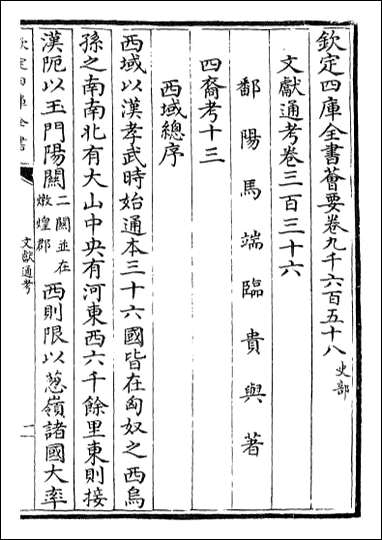 欽定四庫全書薈要卷九千六百五十八 史部
文獻通考卷三百三十六
鄱陽馬端臨貴與著
四裔考十三
西域總序
西域以漢孝武時始通本三十六國皆在匈奴之西烏
孫之南南北有大山中央有河東西六千餘里東則接
漢阨以玉門陽關二關並在燉煌郡西則限以葱嶺諸國大率
欽定四庫全書
文獻通考